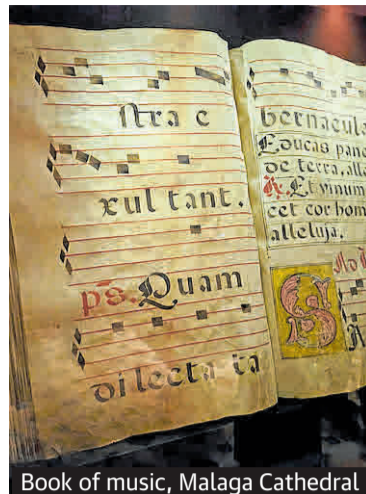 stra e
xultant.
ps. Quam
dilecta ta
bernacula
Educas pane
de terra, alle
Et vinum
cet cor hom
alleluja.
Book of music, Malaga Cathedral